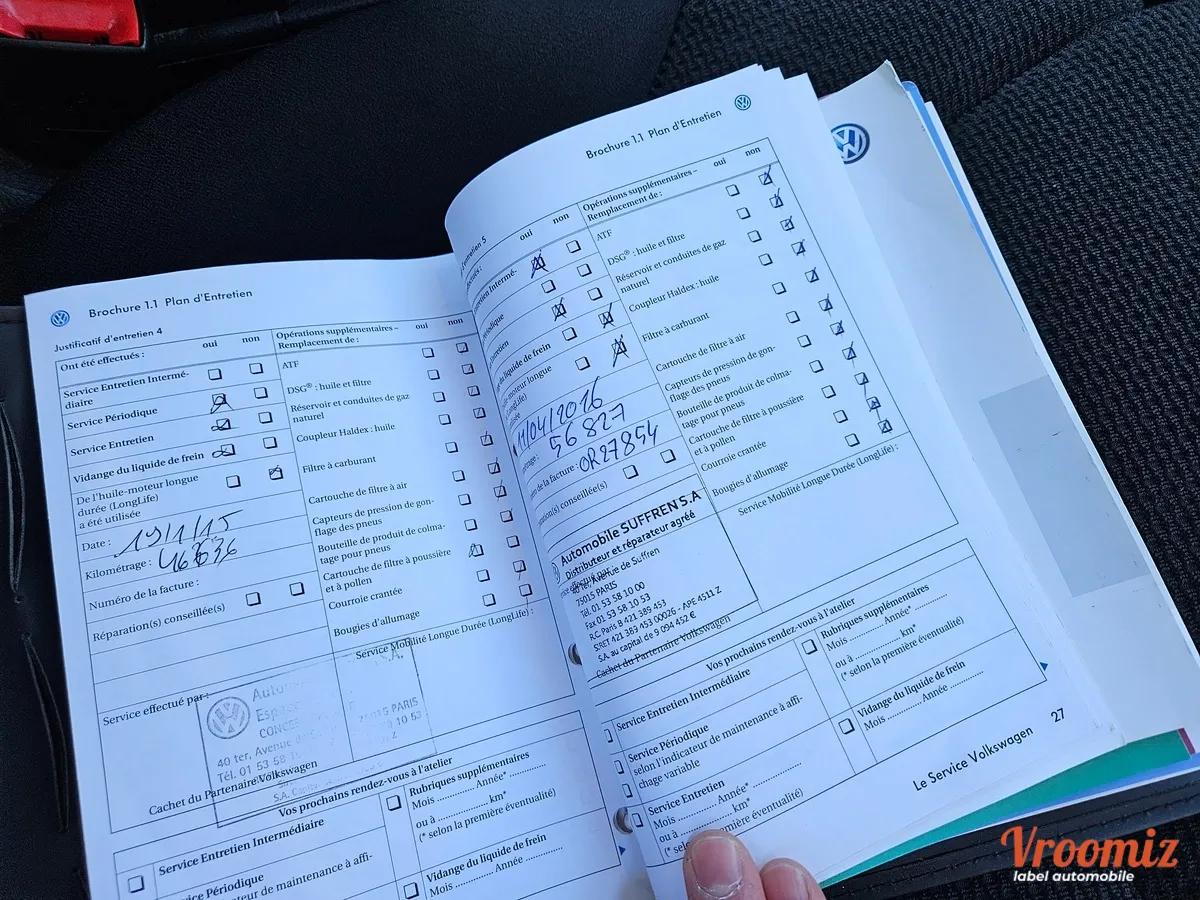 Brochure 1.1 Plan d'Entretien
Justificatif d'entretien 4
Ont été effectués : oui non
Service Entretien Intermé-
diaire
Service Périodique
Service Entretien
Vidange du liquide de frein
De l'huile-moteur longue
durée (LongLife)
a été utilisée
Date : 19/1/15
Kilométrage :
Numéro de la facture :
Réparation(s) conseillée(s)
Service effectué par :
40 ter, Avenue
Tél. 01 53 58
75015 PARIS
Cachet du Partenaire Volkswagen
Opérations supplémentaires – oui non
Remplacement de :
ATF
DSG® : huile et filtre
Réservoir et conduites de gaz
naturel
Coupleur Haldex : huile
Filtre à carburant
Cartouche de filtre à air
Capteurs de pression de gon-
flage des pneus
Bouteille de produit de colma-
tage pour pneus
Cartouche de filtre à poussière
et à pollen
Courroie crantée
Bougies d'allumage
Service Mobilité Longue Durée (LongLife) :
Vos prochains rendez-vous à l'atelier
Service Entretien Intermédiaire
Service Périodique
Rubriques supplémentaires
Mois ............ Année* ............
ou à ............ km*
(* selon la première éventualité)
Vidange du liquide de frein
Mois ............ Année ............
Brochure 1.1 Plan d'Entretien
oui non
11/04/2016
56 827
OR27854
Automobile SUFFREN S.A
Distributeur et réparateur agréé
40 ter, Avenue de Suffren
75015 PARIS
Tél. 01 53 58 10 00
Fax 01 53 58 10 53
R.C. Paris B 421 389 453
SIRET 421 389 453 00026 - APE 4511 Z
S.A. au capital de 9 094 452 €
Cachet du Partenaire Volkswagen
Opérations supplémentaires – oui non
Remplacement de :
ATF
DSG® : huile et filtre
Réservoir et conduites de gaz
naturel
Coupleur Haldex : huile
Filtre à carburant
Cartouche de filtre à air
Capteurs de pression de gon-
flage des pneus
Bouteille de produit de colma-
tage pour pneus
Cartouche de filtre à poussière
et à pollen
Courroie crantée
Bougies d'allumage
Service Mobilité Longue Durée (LongLife) :
Vos prochains rendez-vous à l'atelier
Service Entretien Intermédiaire
Service Périodique
selon l'indicateur de maintenance à affi-
chage variable
Service Entretien
Mois ............ Année* ............
ou à ............ km*
Rubriques supplémentaires
Mois ............ Année* ............
ou à ............ km*
(* selon la première éventualité)
Vidange du liquide de frein
Mois ............ Année ............
Le Service Volkswagen 27
Vroomiz
label automobile